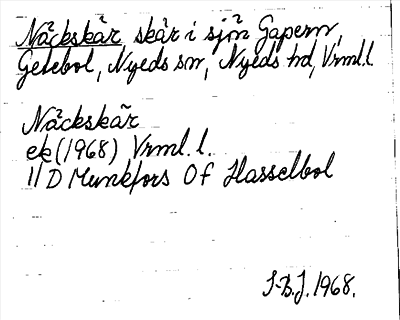 Näckskär, skär i sjön Gapern,
Getebol, Nyeds sn, Nyeds hd, Vrml.l.
Näckskär
ek (1968) Vrml. l.
11 D Munkfors 0f Hasselbol
S-B.J. 1968.